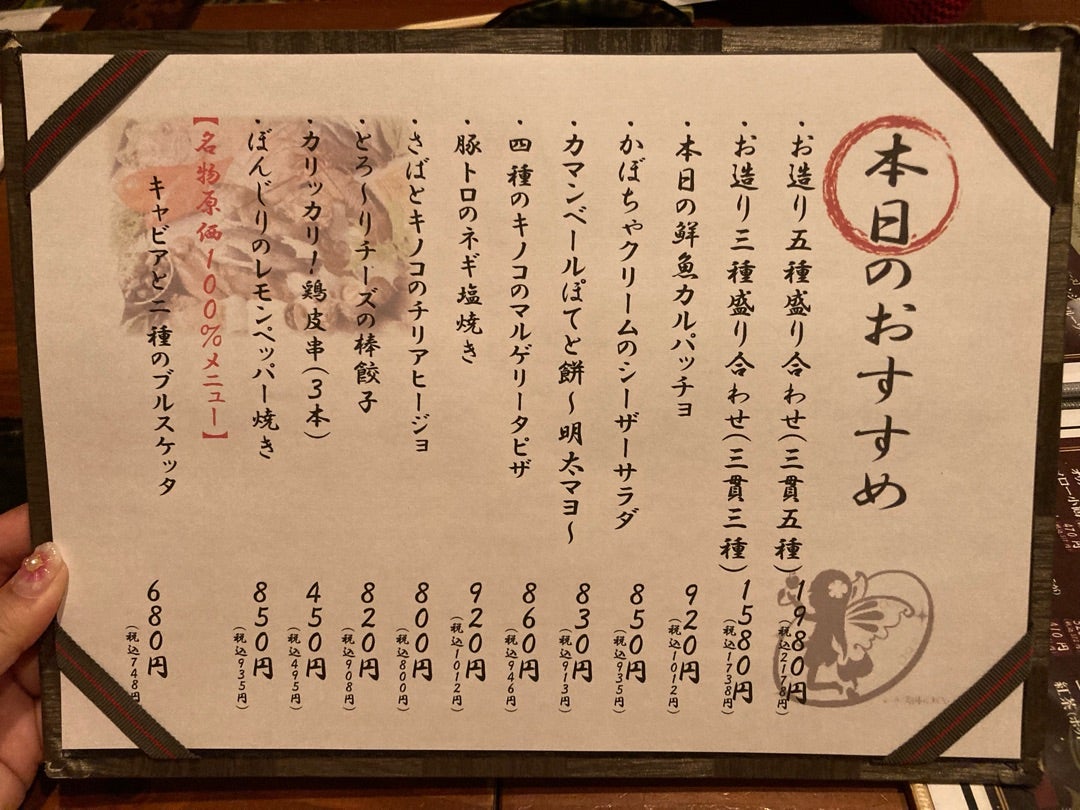 本日のおすすめ
・お造り五種盛り合わせ(三貫五種) 1980円(税込2178円)
・お造り三種盛り合わせ(三貫三種) 1580円(税込1738円)
・本日の鮮魚カルパッチョ 920円(税込1012円)
・かぼちゃクリームのシーザーサラダ 850円(税込935円)
・カマンベールぽてと餅～明太マヨ～ 830円(税込913円)
・四種のキノコのマルゲリータピザ 860円(税込946円)
・豚トロのネギ塩焼き 920円(税込1012円)
・さばとキノコのチリアヒージョ 800円(税込800円)
・とろ～りチーズの棒餃子 820円(税込908円)
・カリッカリ！鶏皮串(3本) 450円(税込495円)
・ぼんじりのレモンペッパー焼き 850円(税込935円)
【名物原価100％メニュー】
キャビアと二種のブルスケッタ 680円(税込748円)
470円
紅茶